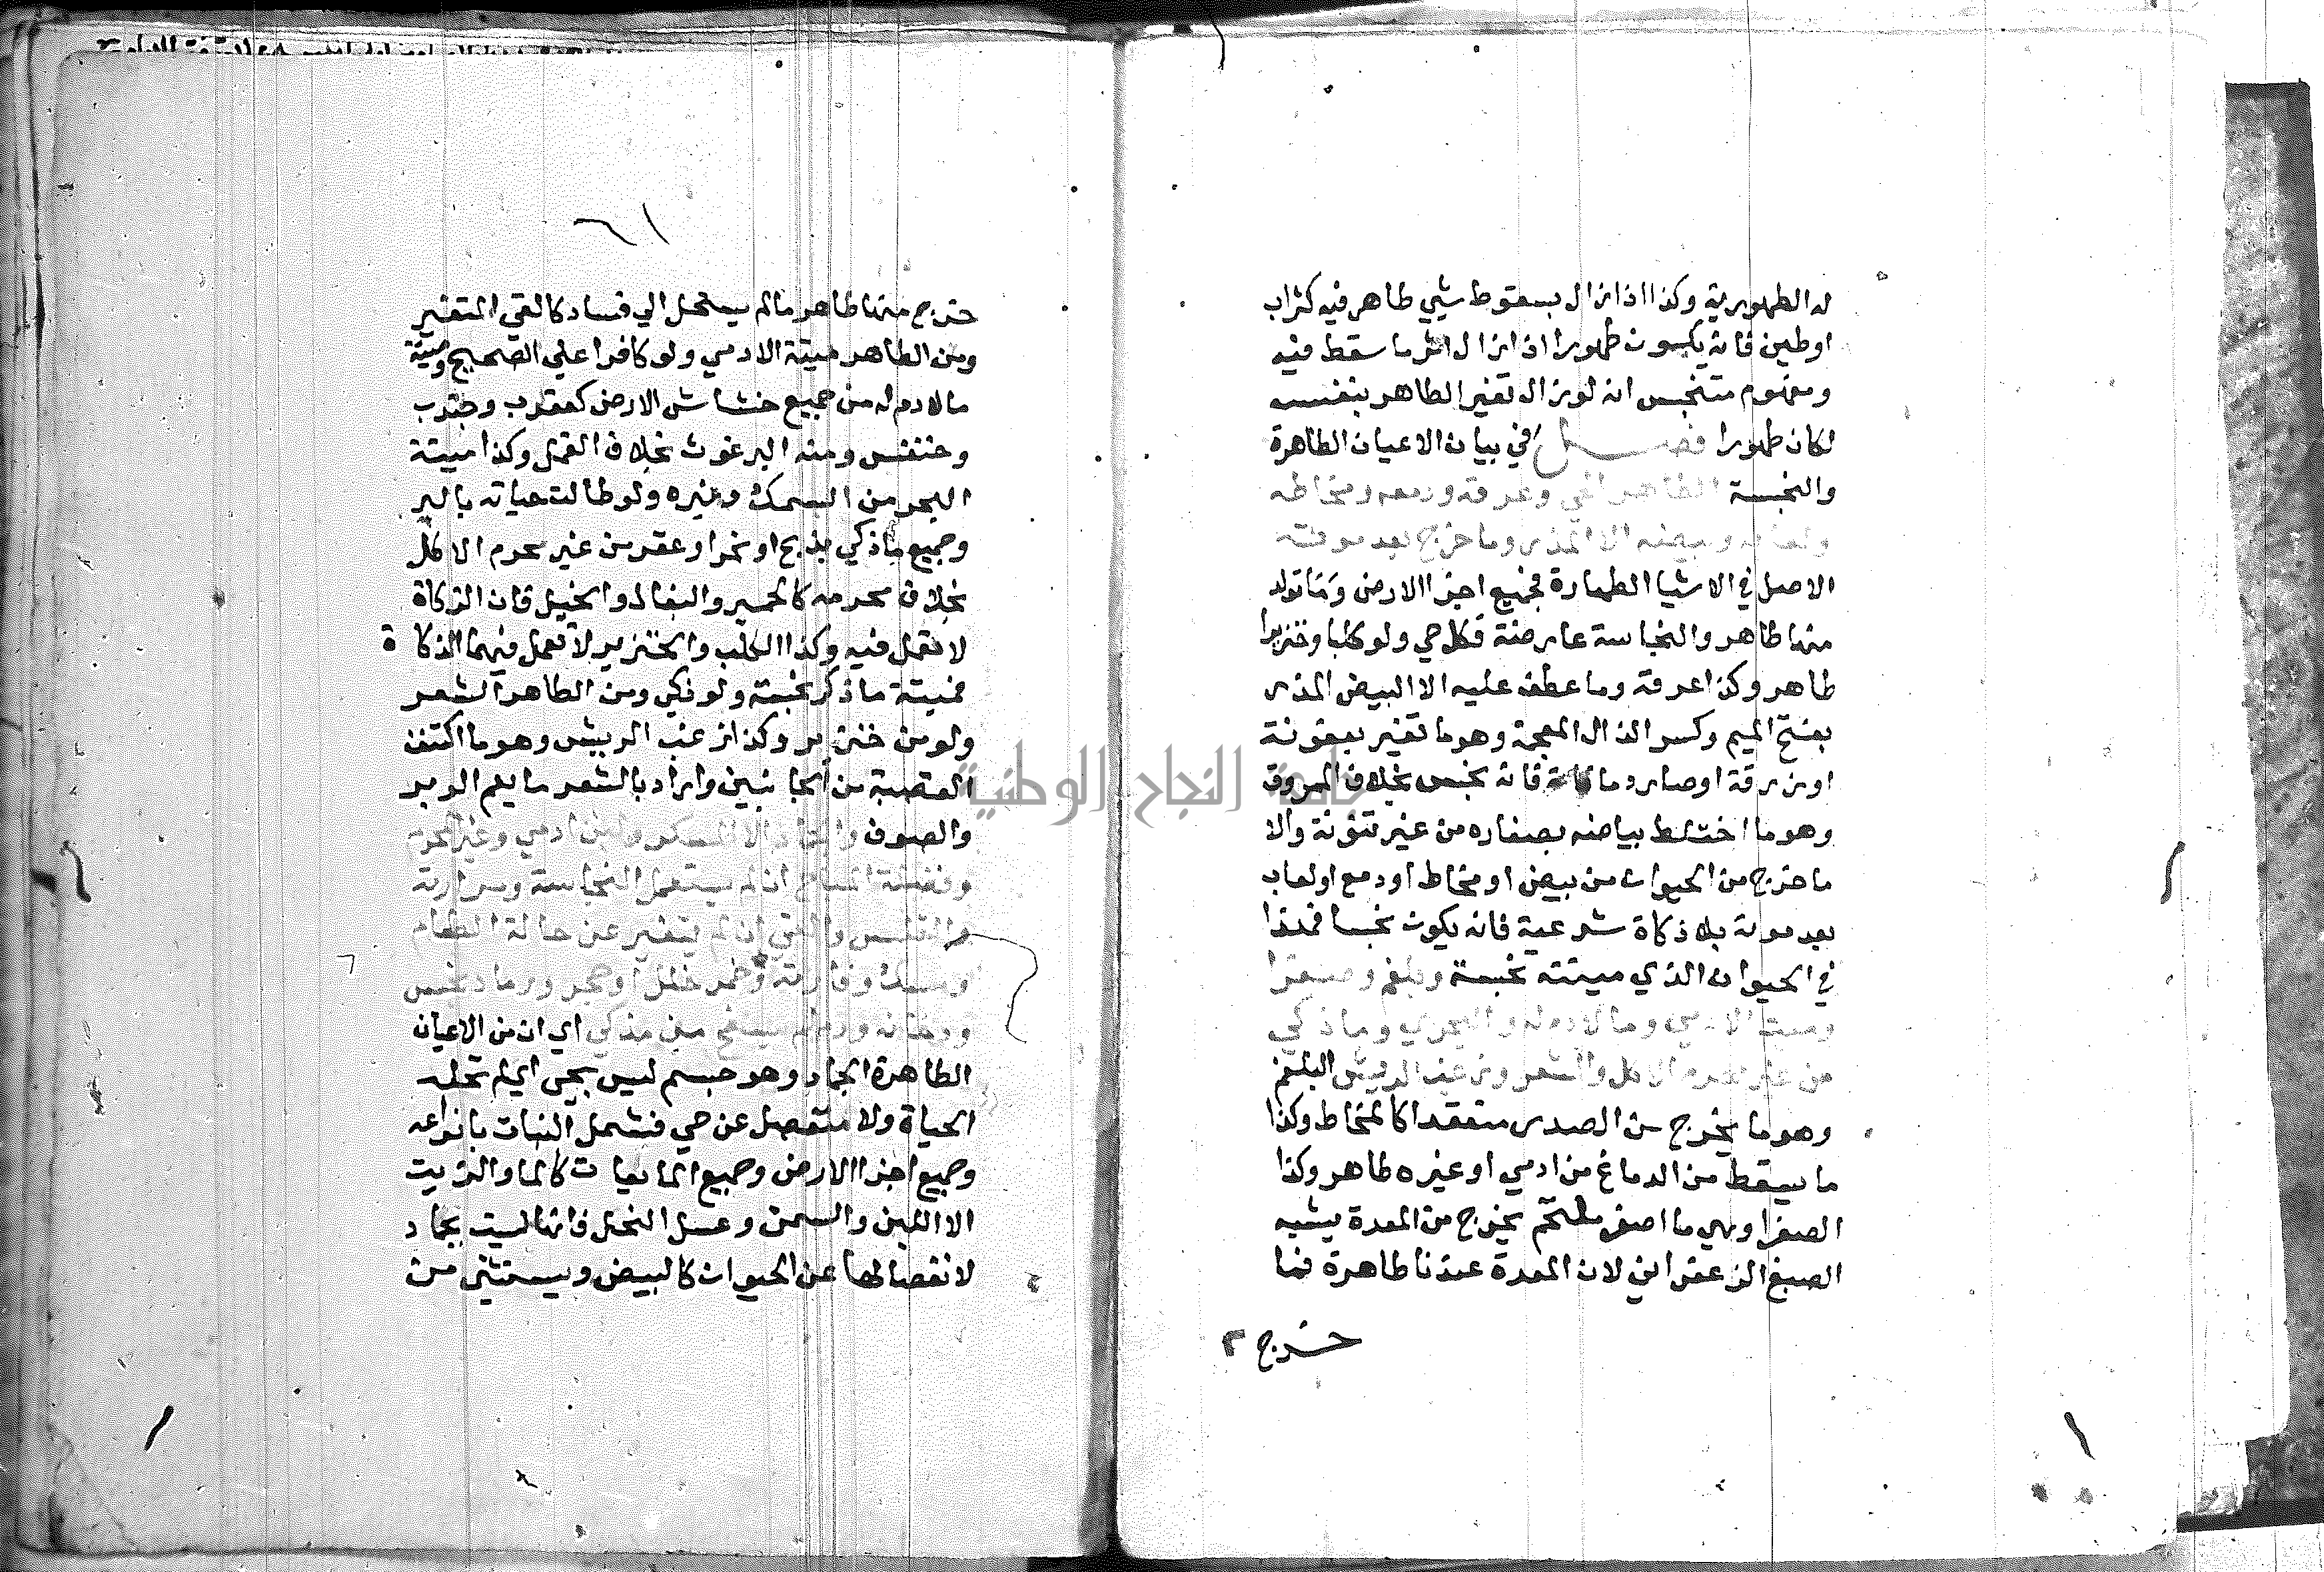 له الطهورية وكذا اذا زال بسقوط شيي طاهر فيه كتراب
او طين فانه يكون طهورا اذا زال اثر ما سقط فيه
ومفهوم متنجس انه لو زال تغير الطاهر بنفسه
لكان طهورا فصل في بيان الاعيان الطاهرة
والنجسة الطاهر الحي وعرقه ودمعه ومخاطه
ولعابه وبيضه الا المذر وما خرج بعد موته
الاصل في الاشيا الطهارة فجميع اجزا الارض وما تولد
منها طاهر والنجاسة عارضة فكل حي ولو كلبا وخنزيرا
طاهر وكذا عرقه وما عطف عليه الا البيض المذر
بفتح الميم وكسر الذال المعجمة وهو ما تغير بعفونة
او زرقة او صار دما فانه نجس بخلاف الممروق
وهو ما اختلط بياضه بصفاره من غير نتونة والا
ما خرج من الحيوان من بيض او مخاط او دمع او لعاب
بعد موته بلا ذكاة شرعية فانه يكون نجسا فهذا
في الحيوان الذي ميتته نجسة وبلغم وصفرا
وميت الادمي وما لا دم له والبحري وما ذكي
من غير محرم الاكل والشعر وزغب الريش البلغم
وهو ما يخرج من الصدر منعقدا كالمخاط وكذا
ما يسقط من الدماغ من ادمي او غيره طاهر وكذا
الصفرا وهي ما اصفر ملتحم يخرج من المعدة يشبه
الصبغ الزعفراني لان المعدة عندنا طاهرة فما
خرج ٢
٦١
خرج منها طاهر ما لم يستحل الي فساد كالقي المتغير
ومن الطاهر ميتة الادمي ولو كافرا علي الصحيح وميتة
ما لا دم له من جميع خشاش الارض كعقرب وجندب
وخنفس ومنه البرغوث بخلاف القمل وكذا ميتة
البحر من السمك وغيره ولو طالت حياته بالبر
وجميع ما ذكي بذبح او نحر او عقر من غير محرم الاكل
بخلاف محرمه كالحمير والبغال والخيل فان الزكاة
لا تعمل فيه وكذا الكلب والخنزير لا تعمل فيهما الذكاة
فميتة ما ذكر نجسة ولو ذكي ومن الطاهر الشعر
ولو من خنزير وكذا زغب الريش وهو ما اكتنف
القصبة من الجانبين واراد بالشعر ما يعم الوبر
والصوف والجماد الا المسكر ولبن ادمي وغير المحرم
وفضلة المباح ان لم يستعمل النجاسة ومرارته
والقلس والقي ان لم يتغير عن حالة الطعام
ومسك وفارته وخمر خلل او حجر ورماد نجس
ودخانه ودم لم يسفح من مذكي اي ان من الاعيان
الطاهرة الجماد وهو جسم ليس بحي اي لم تحله
الحياة ولا منفصل عن حي فشمل النبات بانواعه
وجميع اجزا الارض وجميع المايعات كالما والزيت
الا اللبن والسمن وعسل النحل فانها ليست بجماد
لانفصالها عن الحيوان كالبيض ويستثني من
جامعة النجاح الوطنية